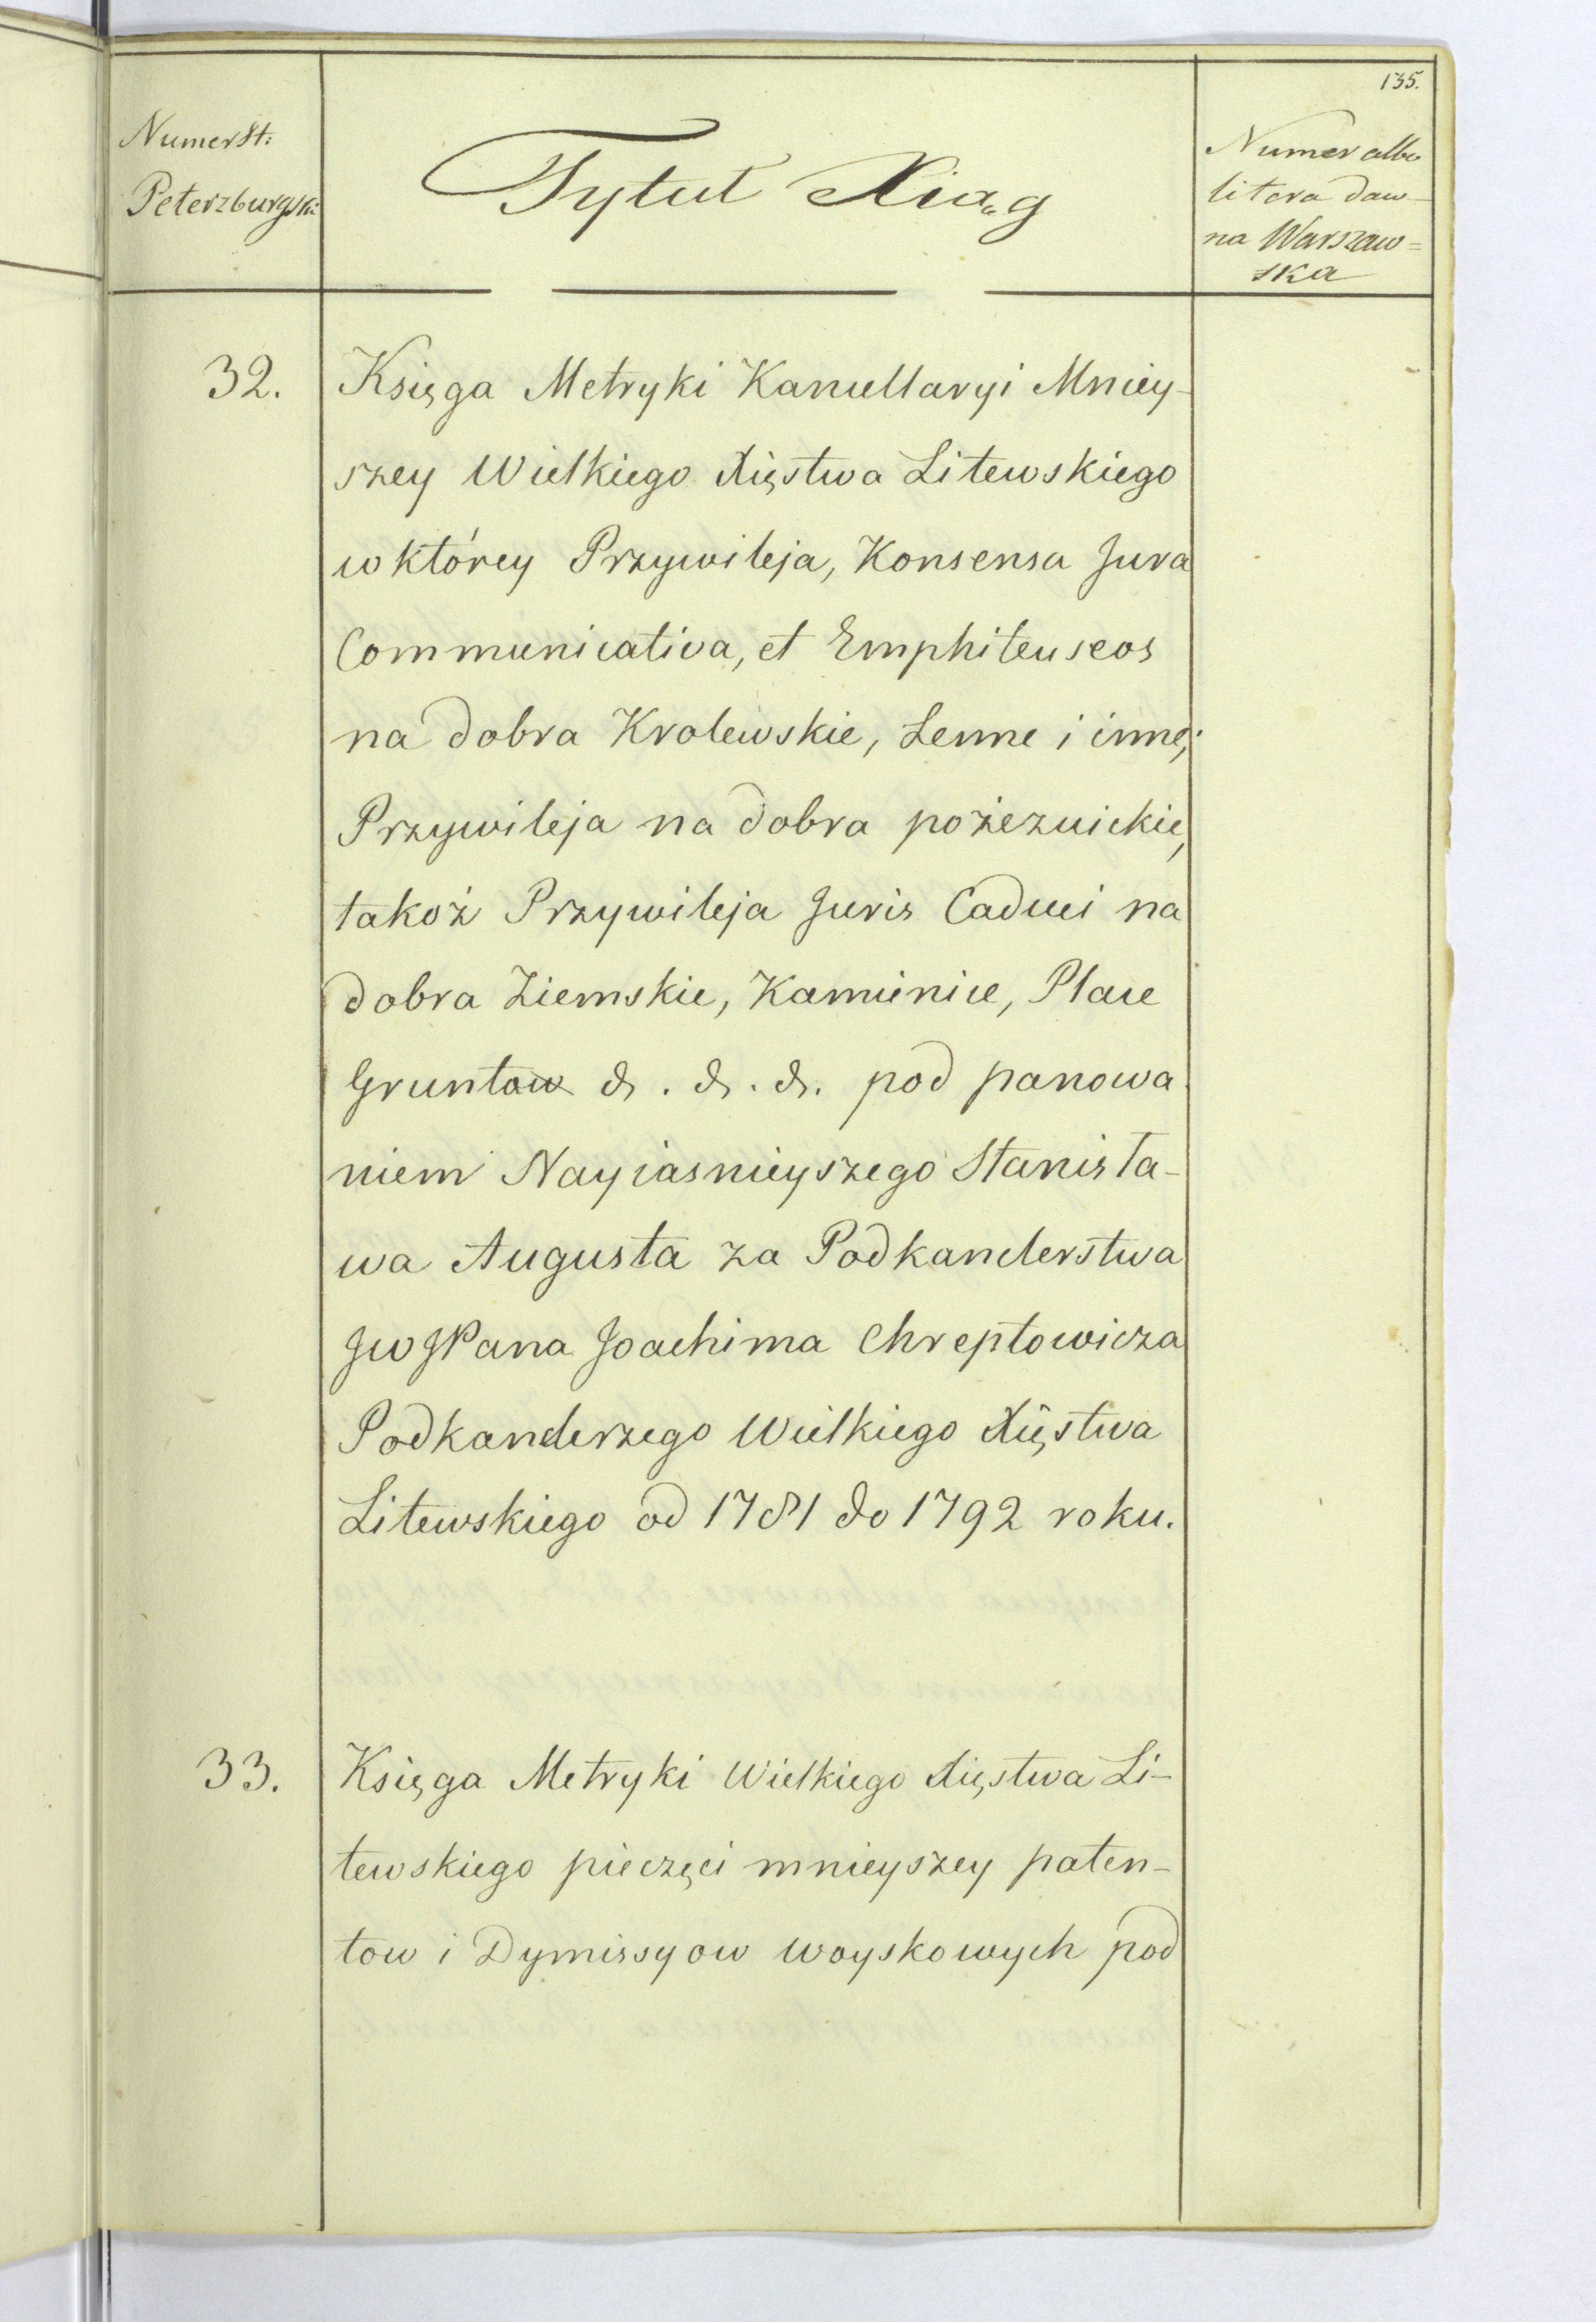 135.
Numer St:
Peterzburgski
Tytuł Xiąg
Numer albo
litera daw-
na Warszaw=
ska
32.
Księga Metryki Kancellaryi Mniey-
szey Wielkiego Xięstwa Litewskiego
w którey Przywileja, Konsensa Jura
Communicativa, et Emphiteuseos
na dobra Krolewskie, Lenne i inne;
Przywileja na dobra pojezuickie,
takoż Przywileja Juris Caduci na
dobra Ziemskie, Kamienice, Place
Gruntow &. &. &. pod panowa
niem Nayiasnieyszego Stanisła-
wa Augusta za Podkanclerstwa
JW JPana Joachima Chreptowicza
Podkanclerzego Wielkiego Xięstwa
Litewskiego od 1781 do 1792 roku.
33.
Księga Metryki Wielkiego Xięstwa Li-
tewskiego pieczęci mnieyszey paten-
tow i Dymissyow woyskowych pod